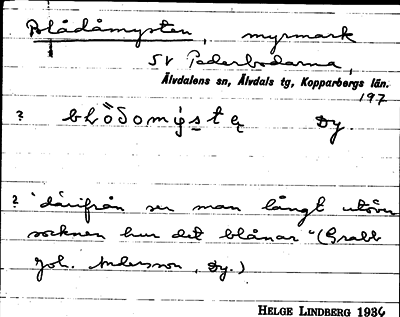 Blådåmysten, myrmark
SV Paderbodarna,
Älvdalens sn, Älvdals tg, Kopparbergs län.
197
? Dy.
? "därifrån ser man långt utöver
socknen hur det blånar" (Grabb
Joh. Andersson, Dy.)
HELGE LINDBERG 1936